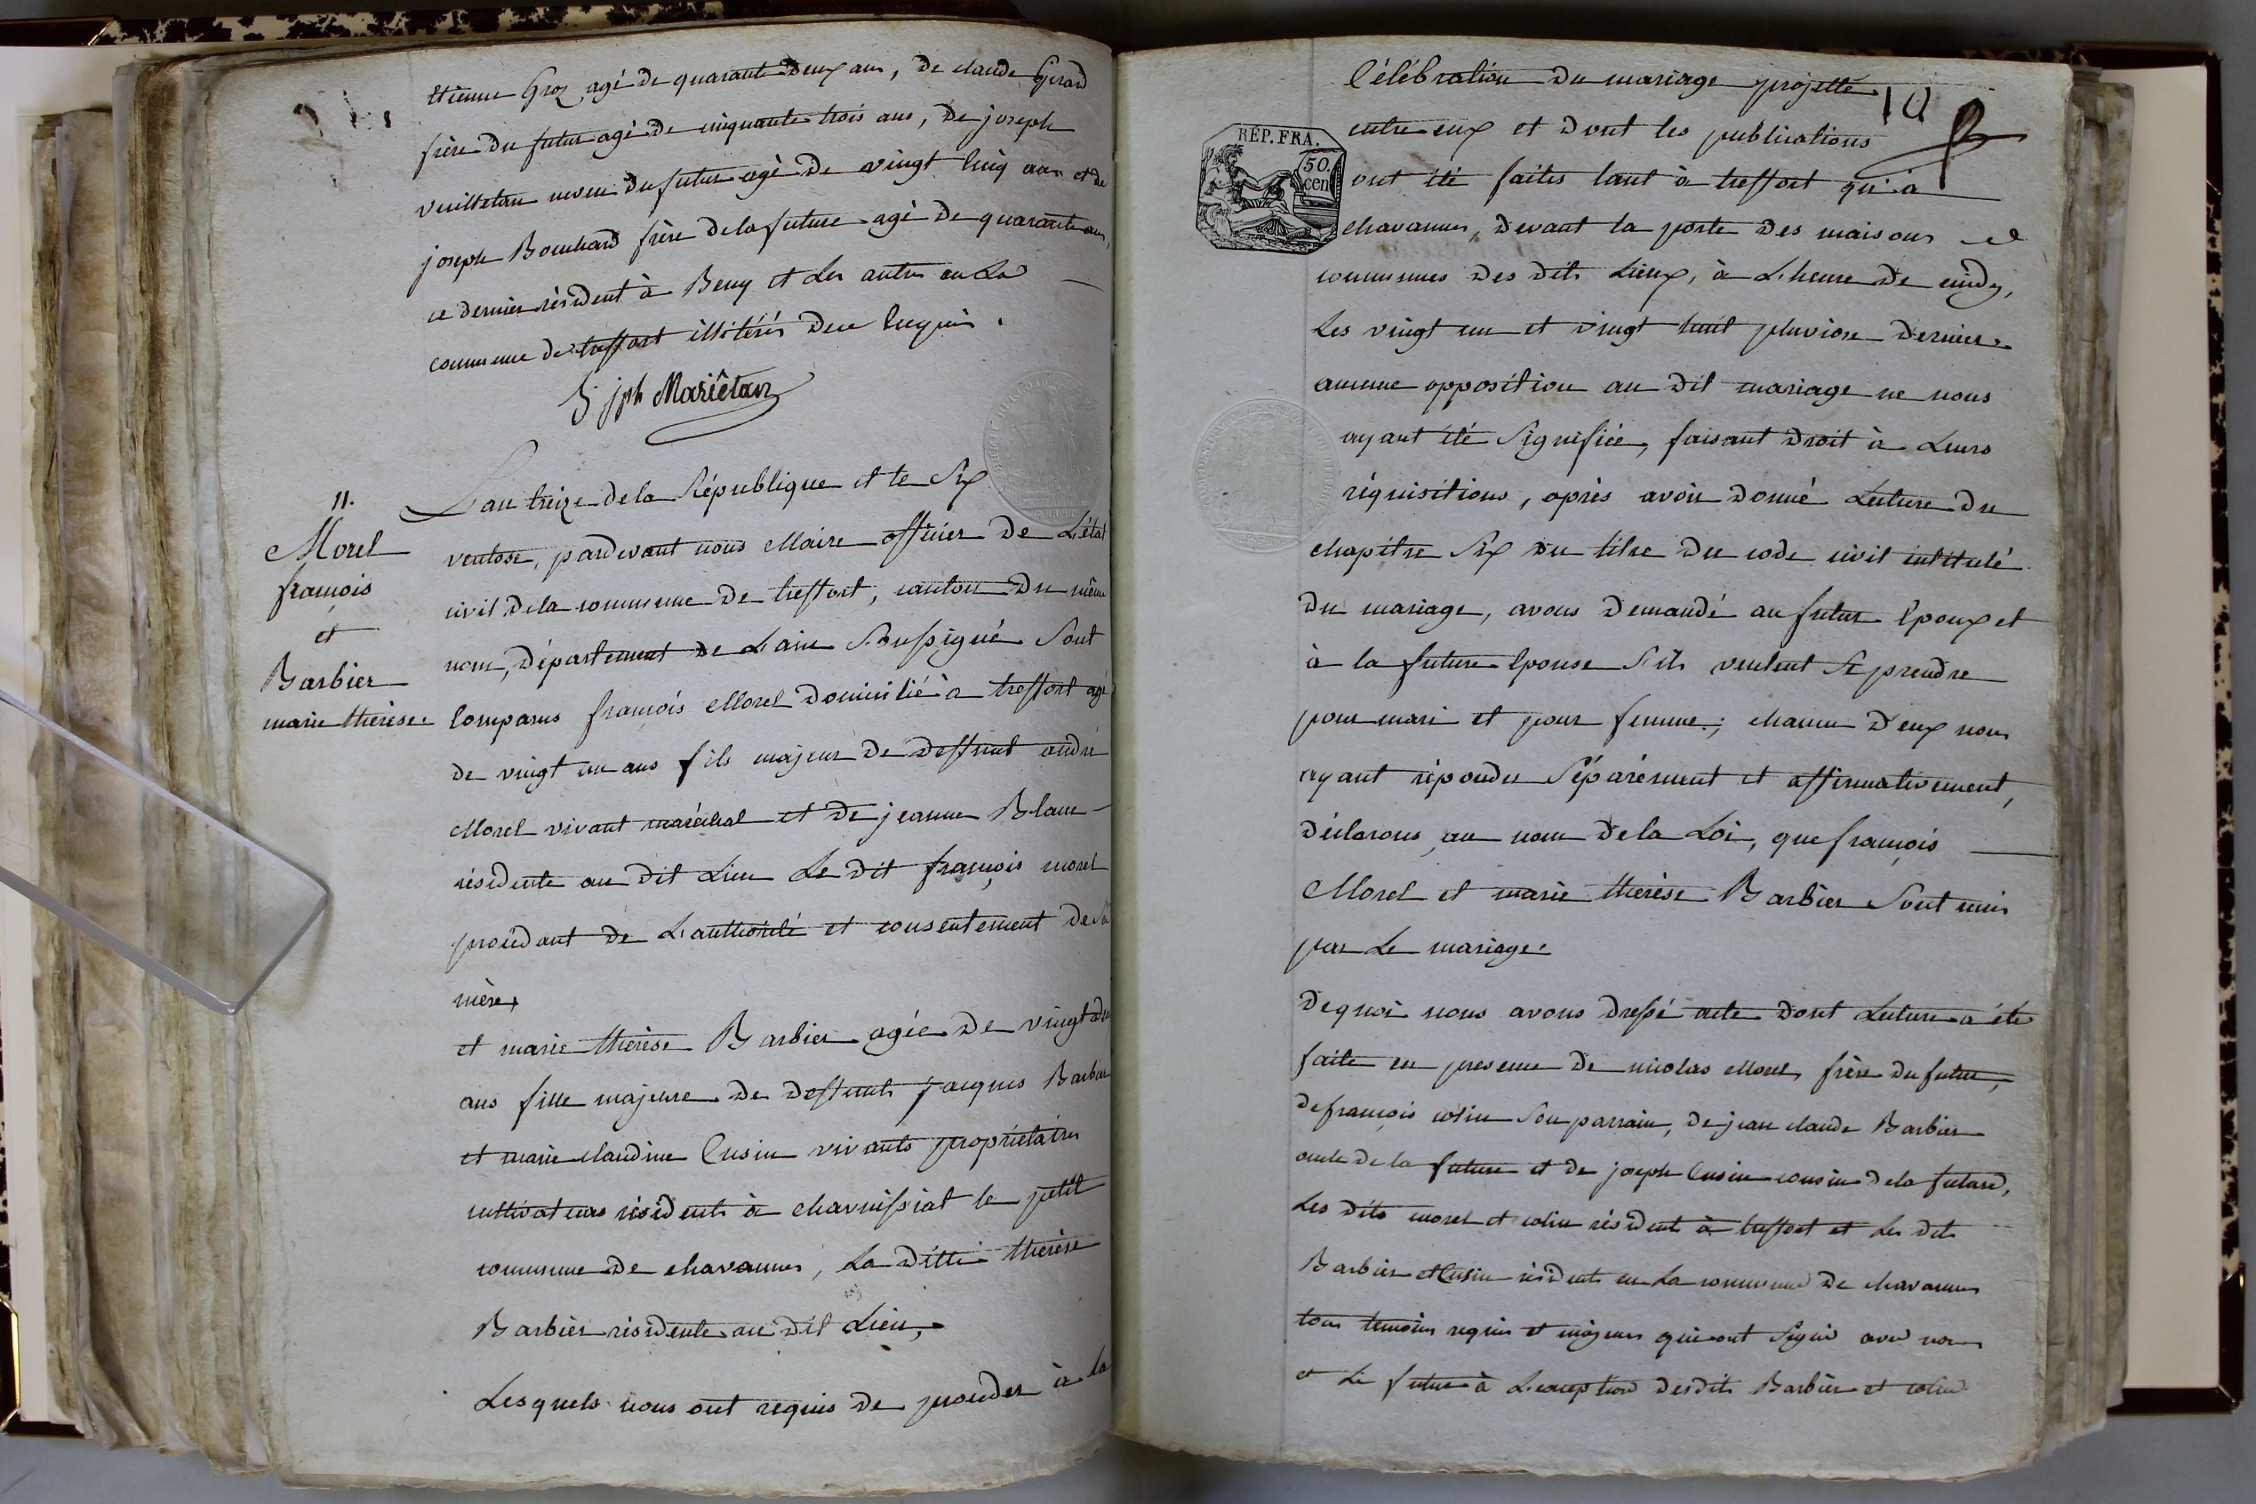 Etienne Groz agé de quarante deux ans, de claude Girard
frère du futur agé de cinquante trois ans, de joseph
vuilletan neveu du futur agé de vingt cinq ans et de
joseph Bouchard frère de la future agé de quarante ans,
ce dernier résident à Beny et Les autres en La
commune de treffort illitérés de ce Enquis.
jph Mariétan
11.
Morel
françois
et
Barbier
marie thérèse
L'an treize de la République et le Six
ventose, pardevant nous Maire officier de L'état
civil de la commune de treffort, canton du même
nom, département de L'ain Soussigné Sont
Comparus françois Morel domicilié à treffort agé
de vingt un ans fils majeur de deffunt andré
Morel vivant maréchal et de jeanne Blanc
résidente au dit Lieu Le dit françois morel
procédant de L'authorité et consentement de Sa
mère,
et marie thérèse Barbier agée de vingt
ans fille majeure de deffunts jacques Barbier
et marie claudine Cusin vivants propriétaires
cultivateurs résidents à charnissiat le petit
commune de chavannes, La ditte thérèse
Barbier résidente au dit Lieu,
Lesquels nous ont requis de procéder à la
Célébration du mariage projetté
10
entre eux et dont les publications
RÉP. FRA.
50.
cen
ont été faites tant à treffort qu'à
chavannes, devant la porte des maisons
communes des dits Lieux, à L'heure de midy,
Les vingt un et vingt huit pluviose dernier.
aucune opposition au dit mariage ne nous
ayant été Signifiée, faisant droit à Leurs
réquisitions, après avoir donné Lecture du
chapitre Six du titre du code civil intitulé
du mariage, avons demandé au futur Epoux et
à la future Epouse S'ils veulent Se prendre
pour mari et pour femme; chacun d'eux nous
ayant répondu Séparément et affirmativement,
déclarons, au nom de la Loi, que françois
Morel et marie thérèse Barbier Sont unis
par Le mariage.
de quoi nous avons dressé acte dont Lecture a été
faite en presence de nicolas Morel, frère du futur,
de françois colin Son parrain, de jean claude Barbier
oncle de la future et de joseph Cusin cousin de la future,
Les dits morel et colin résident à treffort et Les dits
Barbier et Cusin résidents en La commune de chavannes
tous temoins requis et majeurs qui ont Signé avec nous
et Le futur à L'exception desdits Barbier et colin